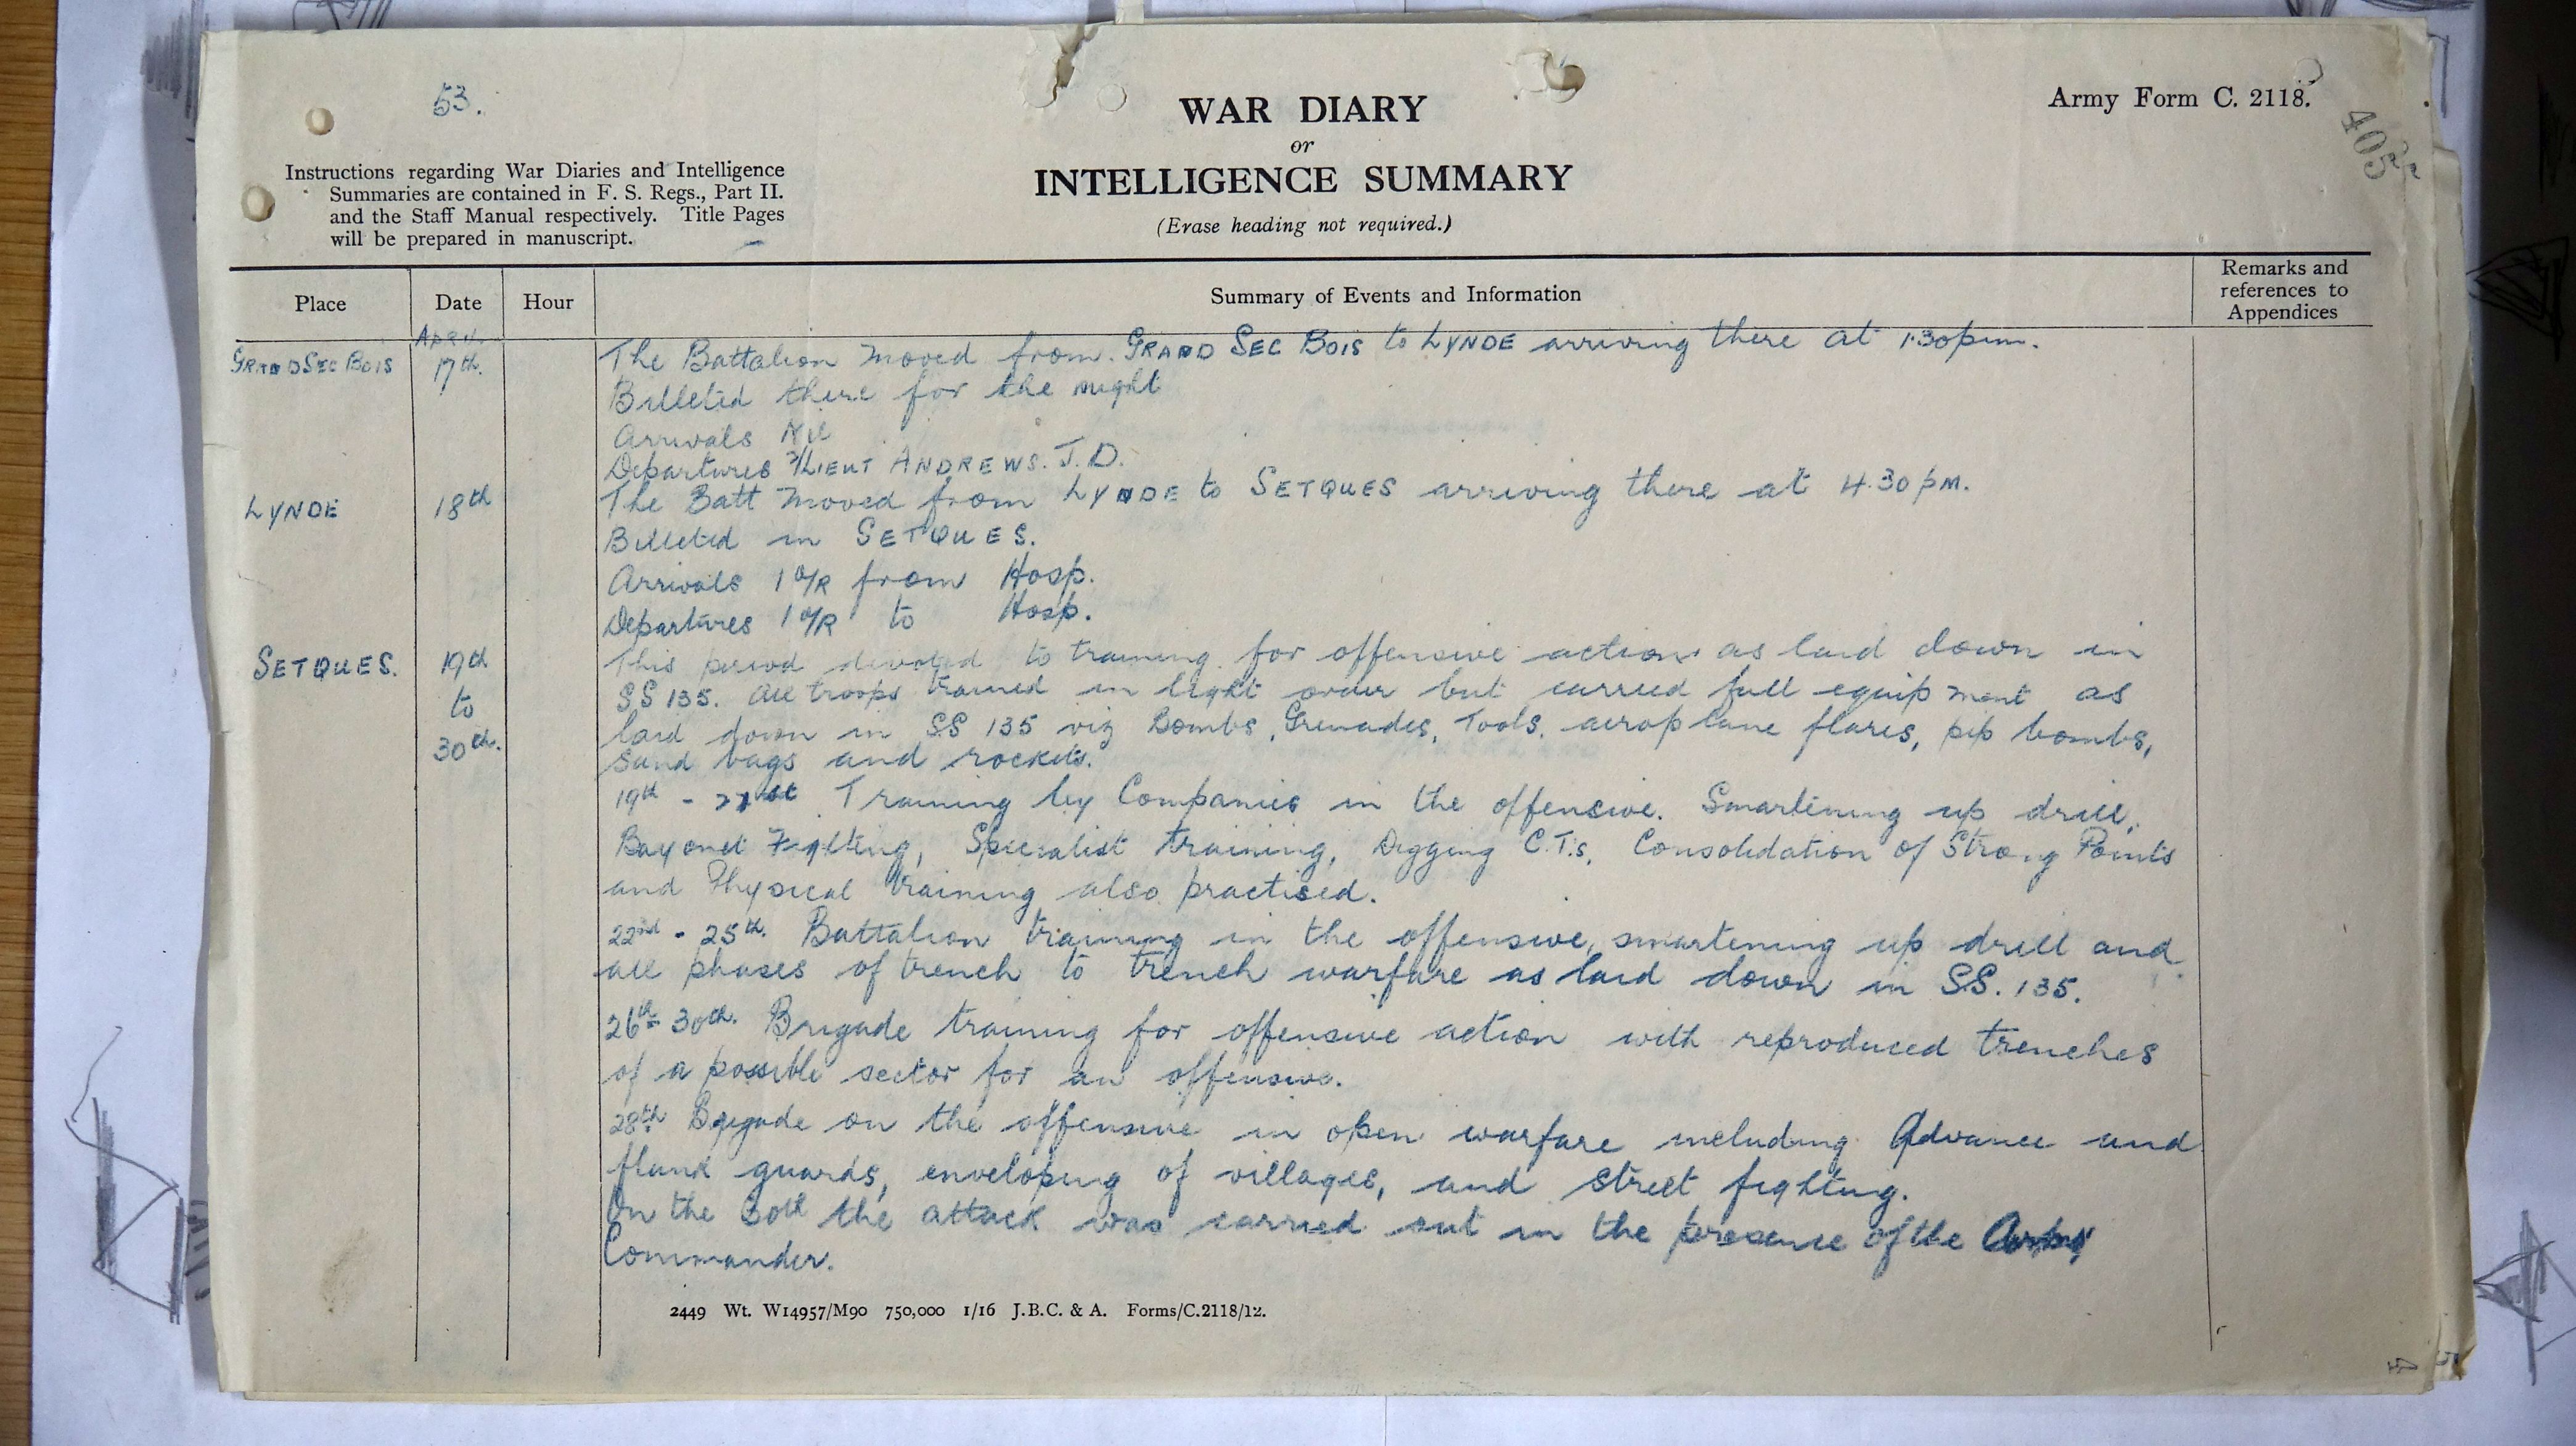 53.
Army Form C. 2118.
405
WAR DIARY
or
INTELLIGENCE SUMMARY
(Erase heading not required.)
Instructions regarding War Diaries and Intelligence
Summaries are contained in F. S. Regs., Part II.
and the Staff Manual respectively. Title Pages
will be prepared in manuscript.
Place Date Hour Summary of Events and Information Remarks and references to Appendices
April
GRAND SEC BOIS 17th. The Battalion moved from GRAND SEC BOIS to LYNDE arriving there at 1.30 p.m.
Billeted there for the night
Arrivals Nil
Departures 2/LIEUT ANDREWS. J.D.
LYNDE 18th The Batt moved from LYNDE to SETQUES arriving there at 4.30 pm.
Billeted in SETQUES.
Arrivals 1 O/R from Hosp.
Departures 1 O/R to Hosp.
SETQUES. 19th to 30th. This period devoted to training for offensive action as laid down in
SS 135. All troops trained in light order but carried full equipment as
laid down in SS 135 viz Bombs, Grenades, Tools, aeroplane flares, pip bombs,
sand bags and rockets.
19th - 21st Training by Companies in the offensive. Smartening up drill,
Bayonet Fighting, Specialist training, Digging C.T.s, Consolidation of Strong Points
and Physical training also practised.
22nd - 25th. Battalion training in the offensive, smartening up drill and
all phases of trench to trench warfare as laid down in SS. 135.
26th - 30th. Brigade training for offensive action with reproduced trenches
of a possible sector for an offensive.
28th Brigade on the offensive in open warfare including Advance and
flank guards, enveloping of villages, and street fighting.
On the 30th the attack was carried out in the presence of the Army
Commander.
2449 Wt. W14957/M90 750,000 1/16 J.B.C. & A. Forms/C.2118/12.